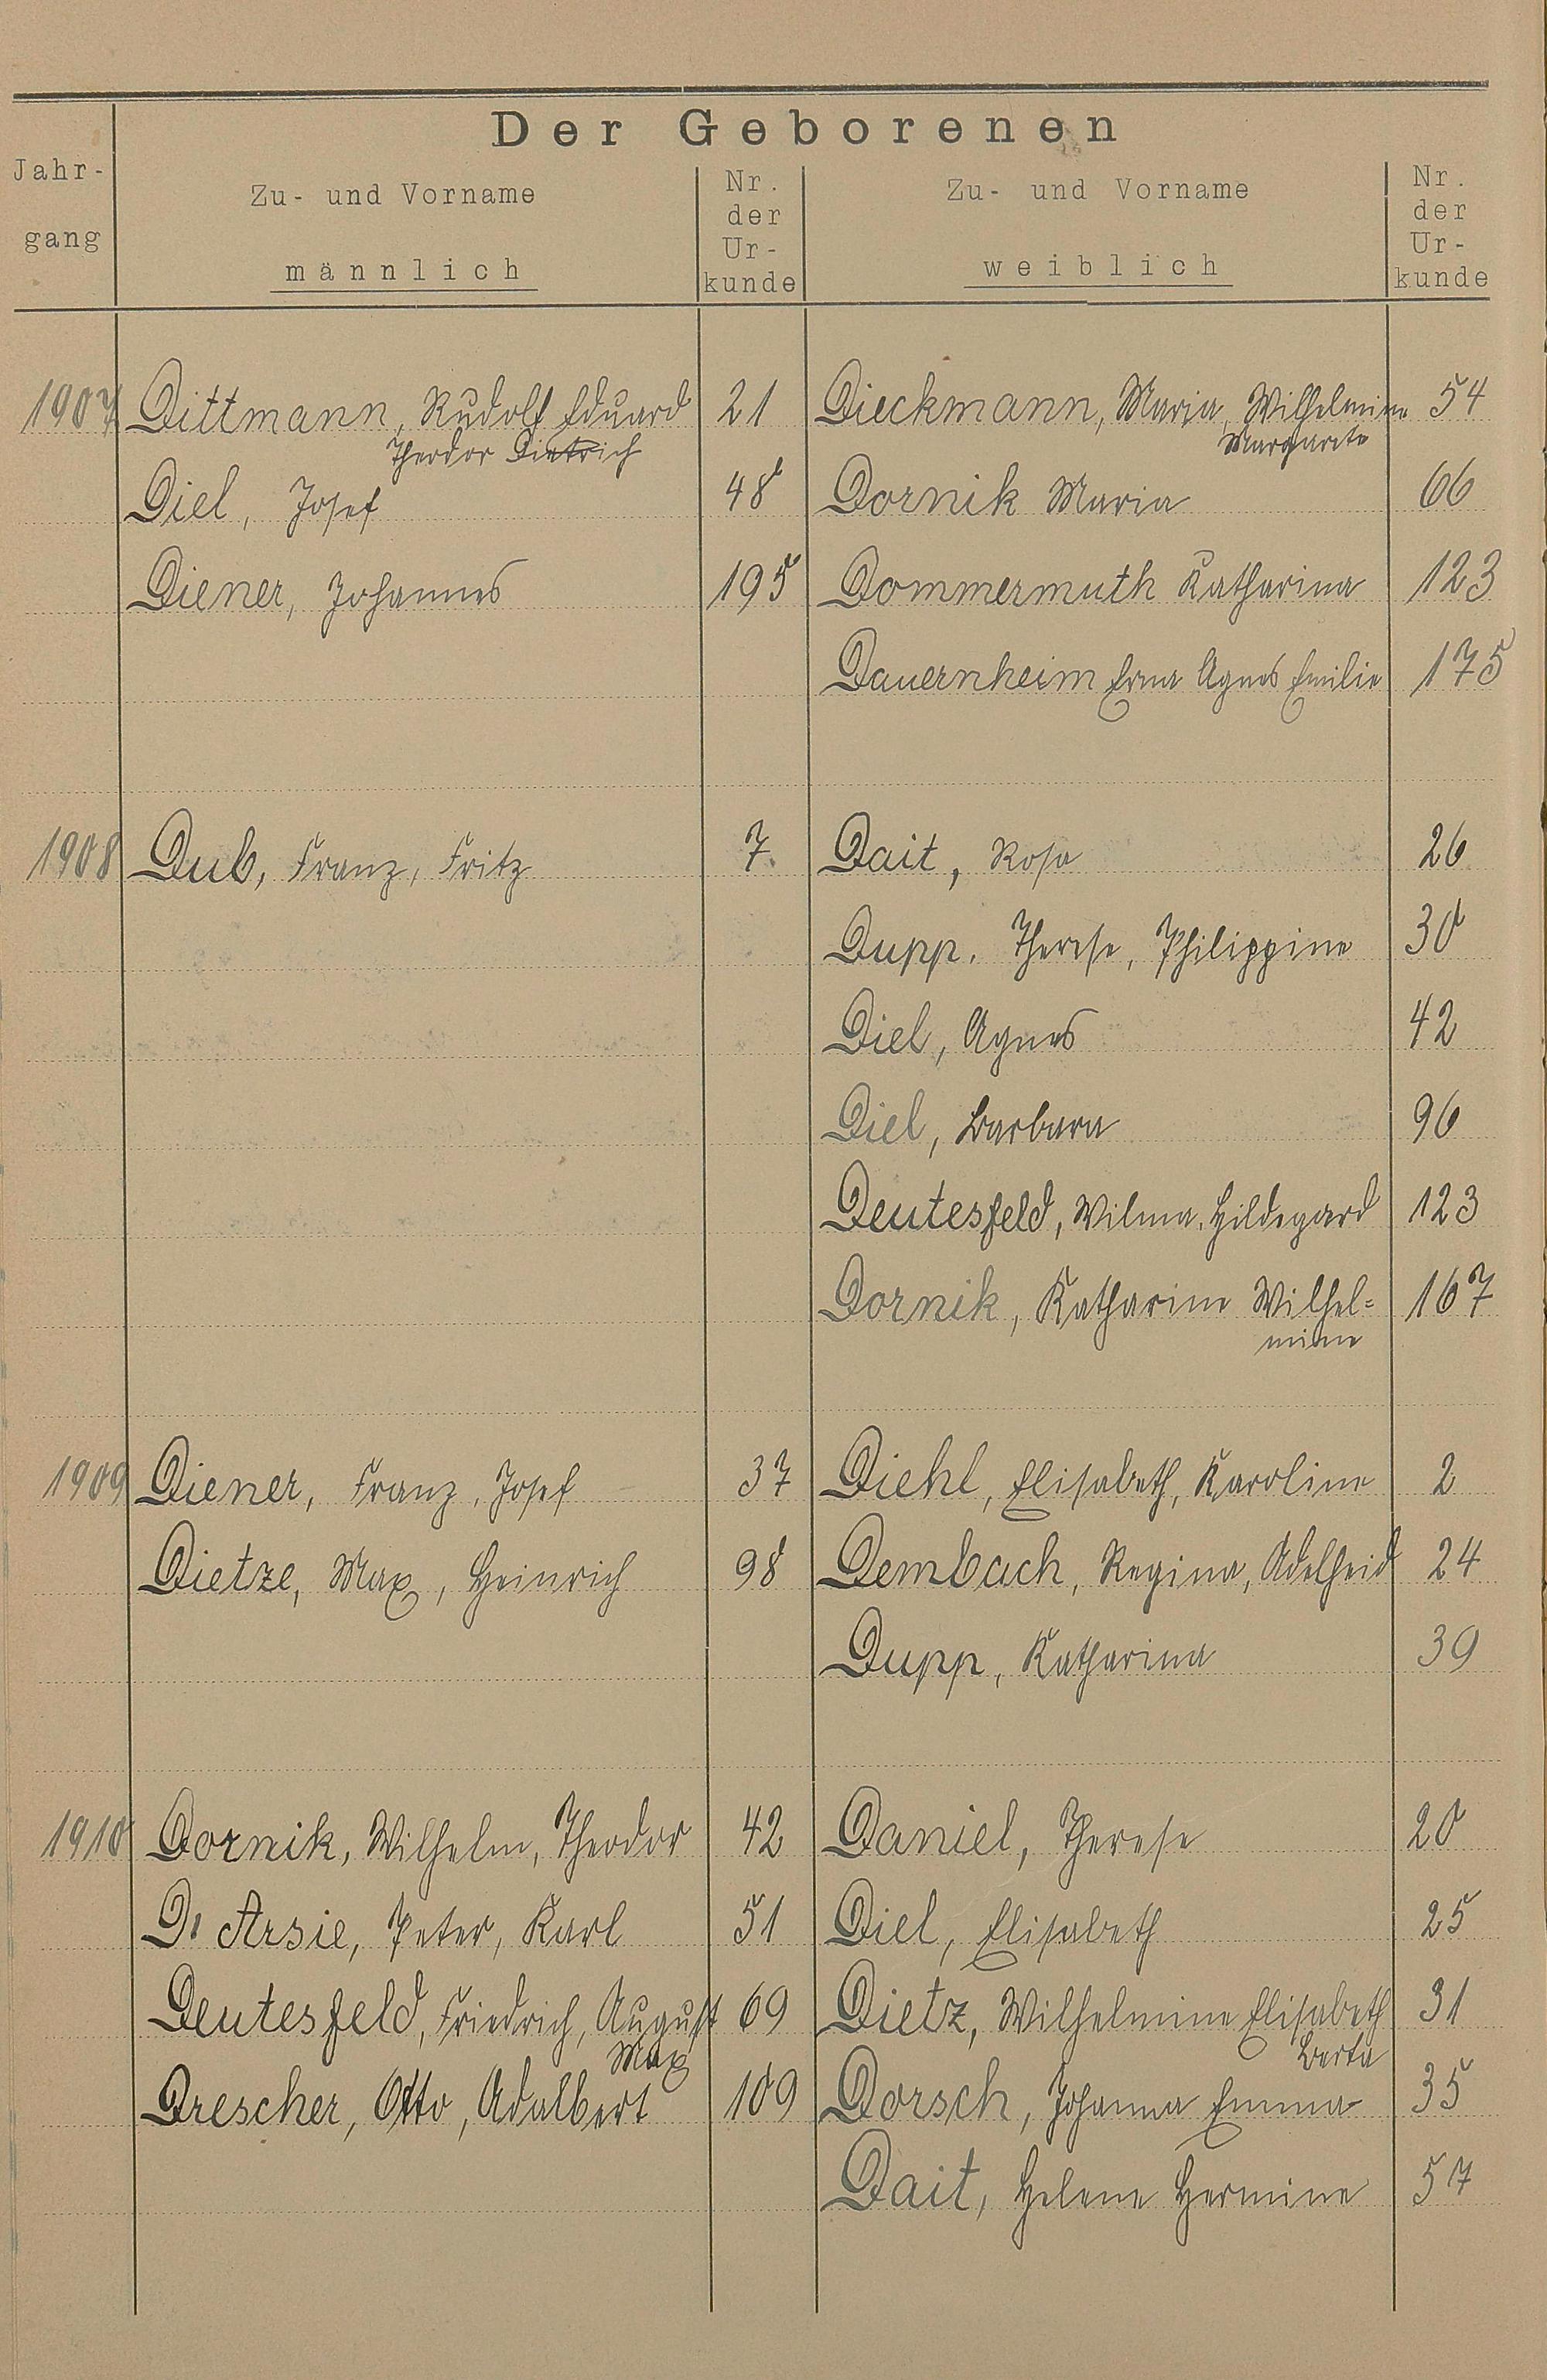 Der Geborenen
Jahr-
gang
Zu- und Vorname
männlich
Nr.
der
Ur-
kunde
Zu- und Vorname
weiblich
Nr.
der
Ur-
kunde
1907 Dittmann, Rudolf Eduard 21 Dieckmann, Maria, Wilhelmine 54
Theodor Dietrich Margarete
Diel, Josef 48 Dornik Maria 66
Diener, Johannes 195 Dommermuth Katharina 123
Dauernheim Erna Agnes Emilie 175
1908 Dub, Franz, Fritz 7. Dait, Rosa 26
Dupp, Therese, Philippine 30
Diel, Agnes 42
Diel, Barbara 96
Deutesfeld, Wilma, Hildegard 123
Dornik, Katharine Wilhel= 167
mine
1909 Diener, Franz, Josef 37 Diehl, Elisabeth, Karoline 2
Dietze, Max, Heinrich 98 Dembach, Regina, Adelheid 24
Dupp, Katharina 39
1910 Dornik, Wilhelm, Theodor 42 Daniel, Therese 20
D' Arsie, Peter, Karl 51 Diel, Elisabeth 25
Deutesfeld, Friedrich, August 69 Dietz, Wilhelmine Elisabeth 31
Max Berta
Drescher, Otto, Adalbert 109 Dorsch, Johanna Emma 35
Dait, Helene Hermine 57